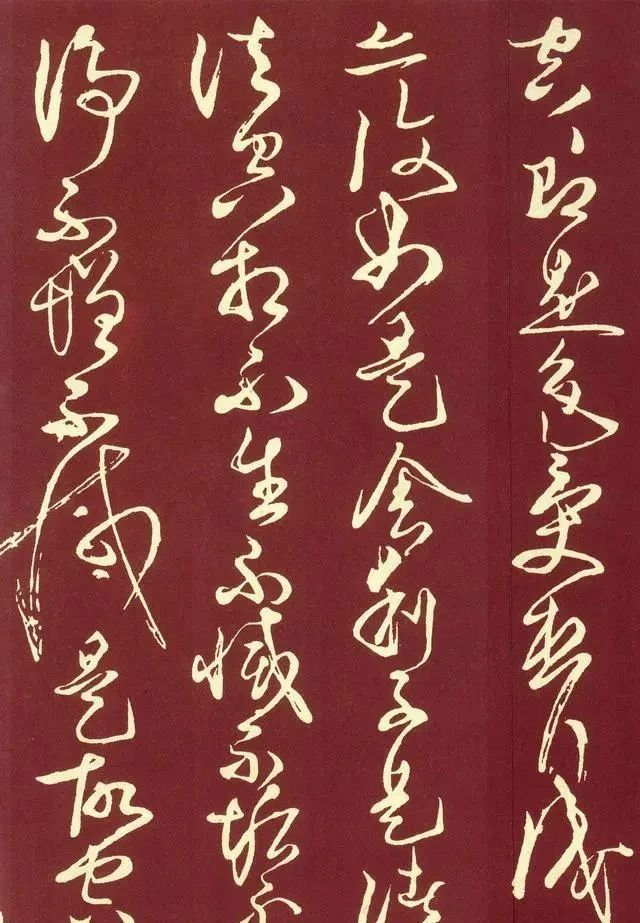 空即是色受想行識
亦復如是舍利子是諸
法空相不生不滅不垢不
淨不增不減是故空